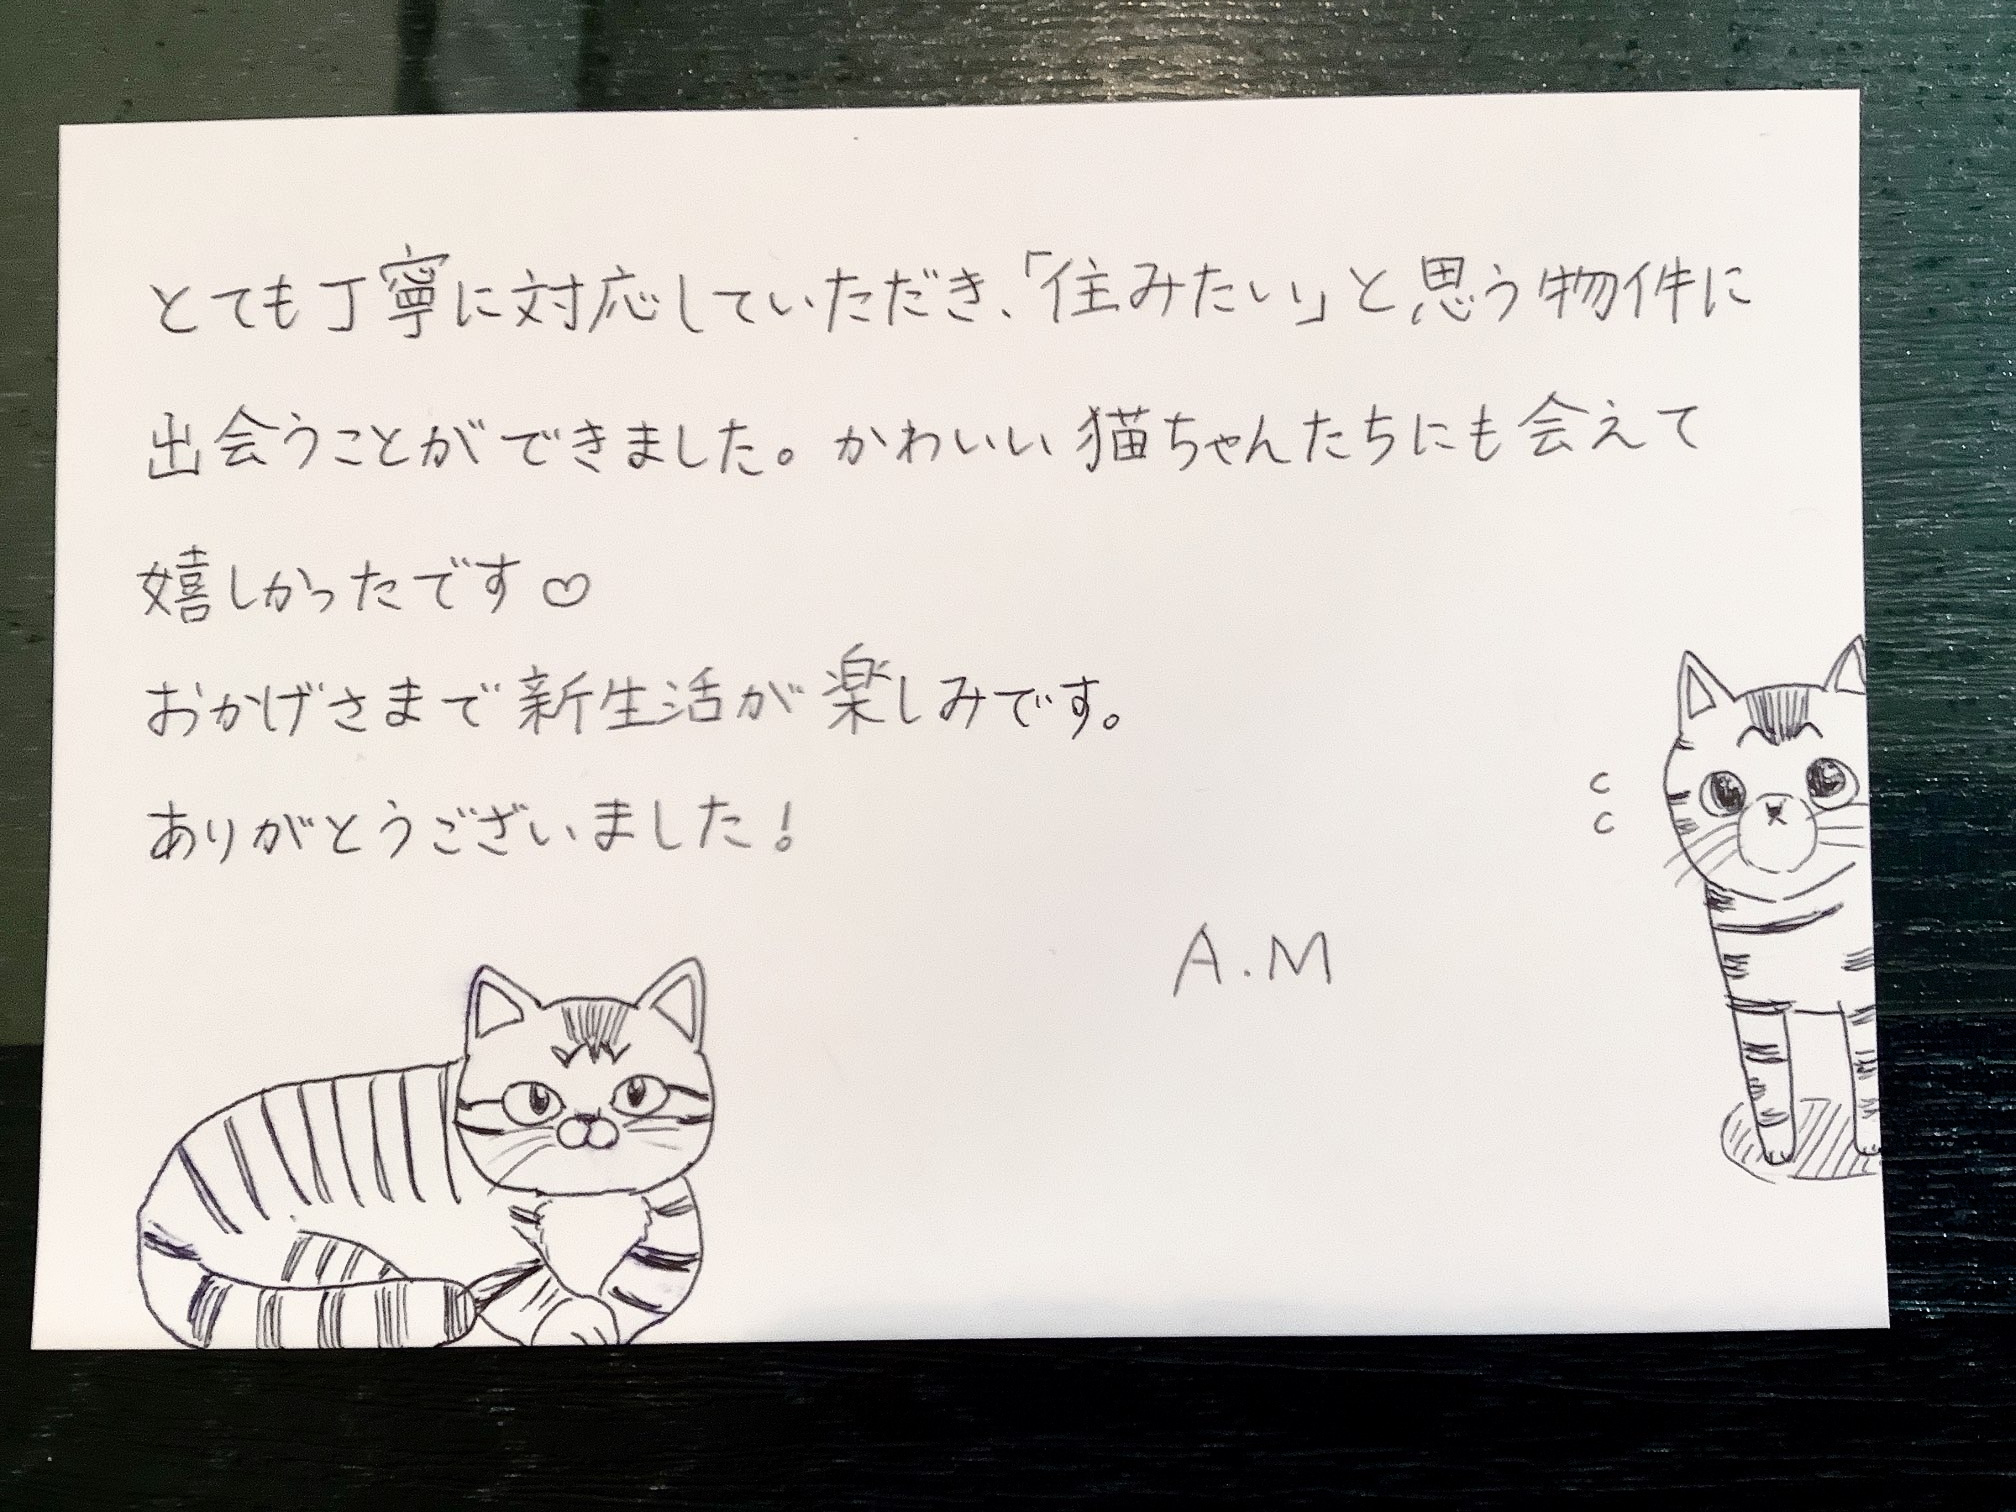 とても丁寧に対応していただき、「住みたい」と思う物件に
出会うことができました。かわいい猫ちゃんたちにも会えて
嬉しかったです♡
おかげさまで新生活が楽しみです。
ありがとうございました！
A.M